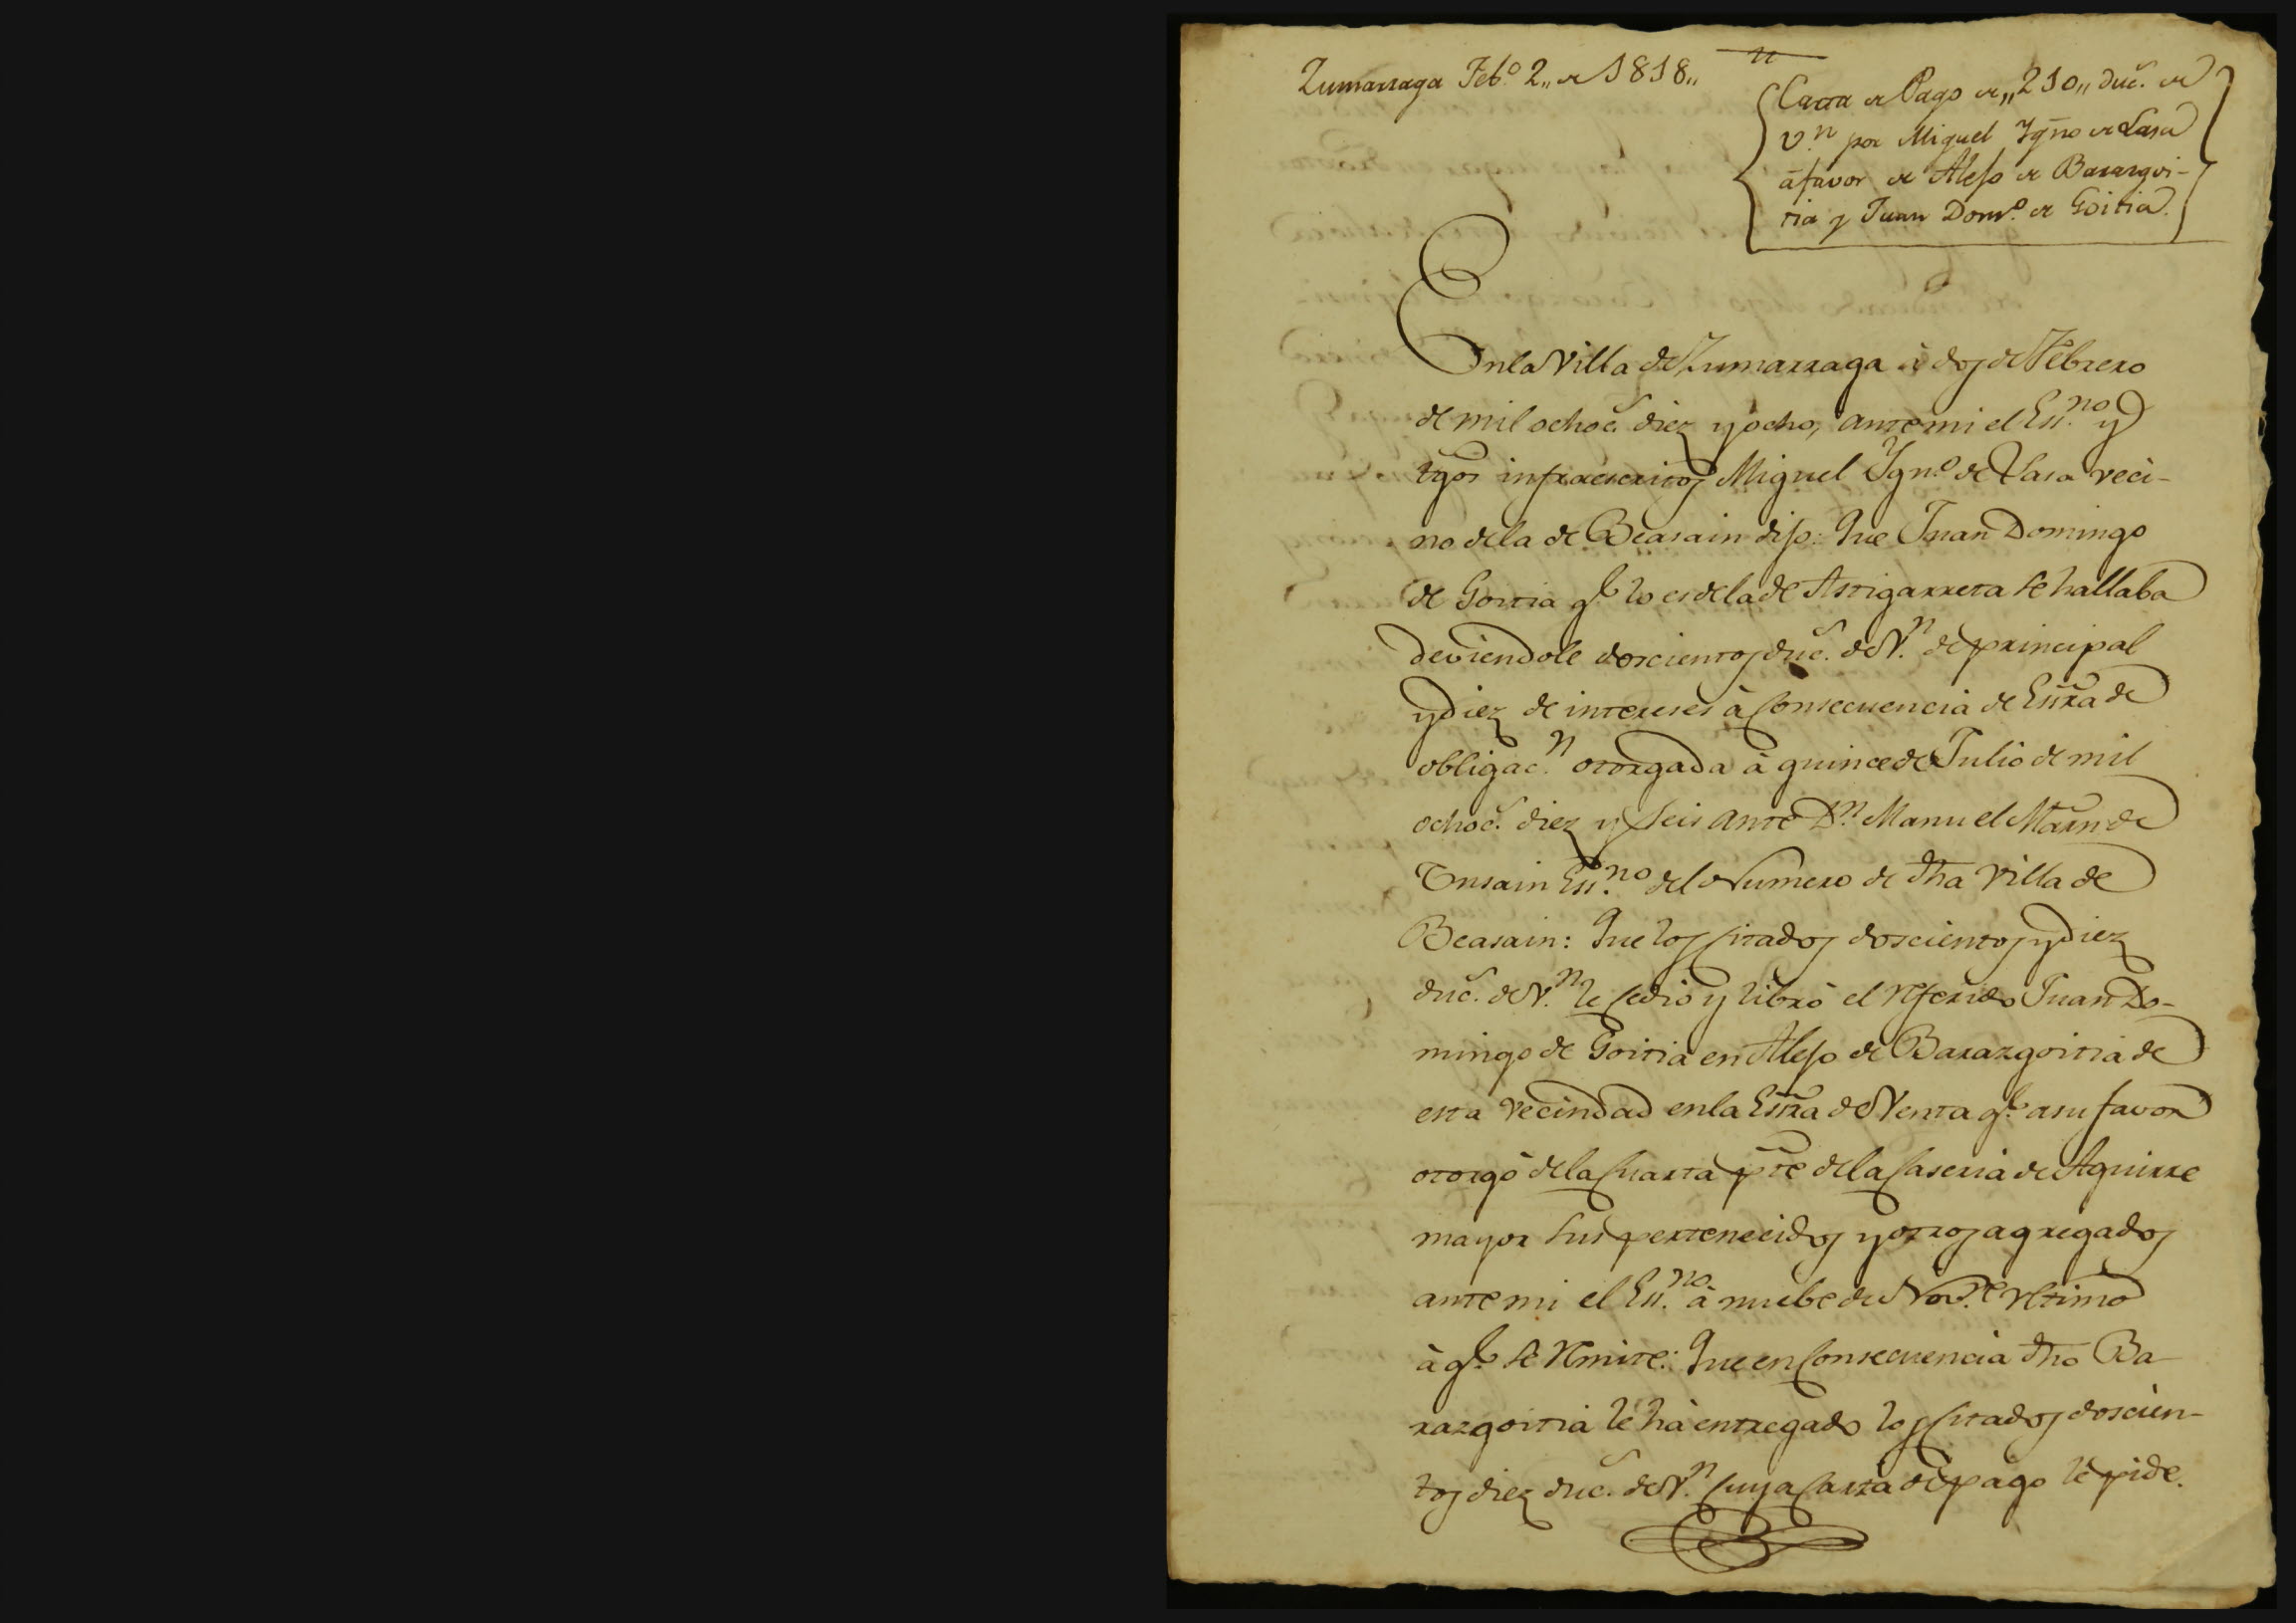 Zumarraga Feb.º 2,, de 1818,,
Carta de Pago de,, 210,, duc.s de
V.n por Miguel Ygno de Lasa
á favor de Alejo de Barazgoi-
tia y Juan Dom.º de Goitia.
En la Villa de Zumarraga à dos de Febrero
de mil ochoc.s diez y ocho, ante mi el Ess.no y
tgos infraescritos Miguel Ygn.º de Lasa veci-
no de la de Beasain dijo: Que Juan Domingo
de Goitia q.e lo es de la de Astigarreta se hallaba
deviendole doscientos duc.s de V.n de principal
y diez de intereses à consecuencia de Essra de
obligac.n otorgada à quince de Julio de mil
ochoc.s diez y seis ante D.n Manuel Marn de
Unsain Ess.no del Numero de dha Villa de
Beasain: Que los citados doscientos y diez
duc.s de V.n le cedio y librò el referido Juan Do-
mingo de Goitia en Alejo de Barazgoitia de
esta vecindad en la Essra de Venta q.e a su favor
otorgò de la cuarta pte de la Caseria de Aguirre
mayor sus pertenecidos y otros agregados
ante mi el Ess.no à nuebe de Nov.e ultimo
à q.e se remite: Que en consecuencia dho Ba
razgoitia le hà entregado los citados doscien-
tos diez duc.s de V.n cuya carta de pago le pide.